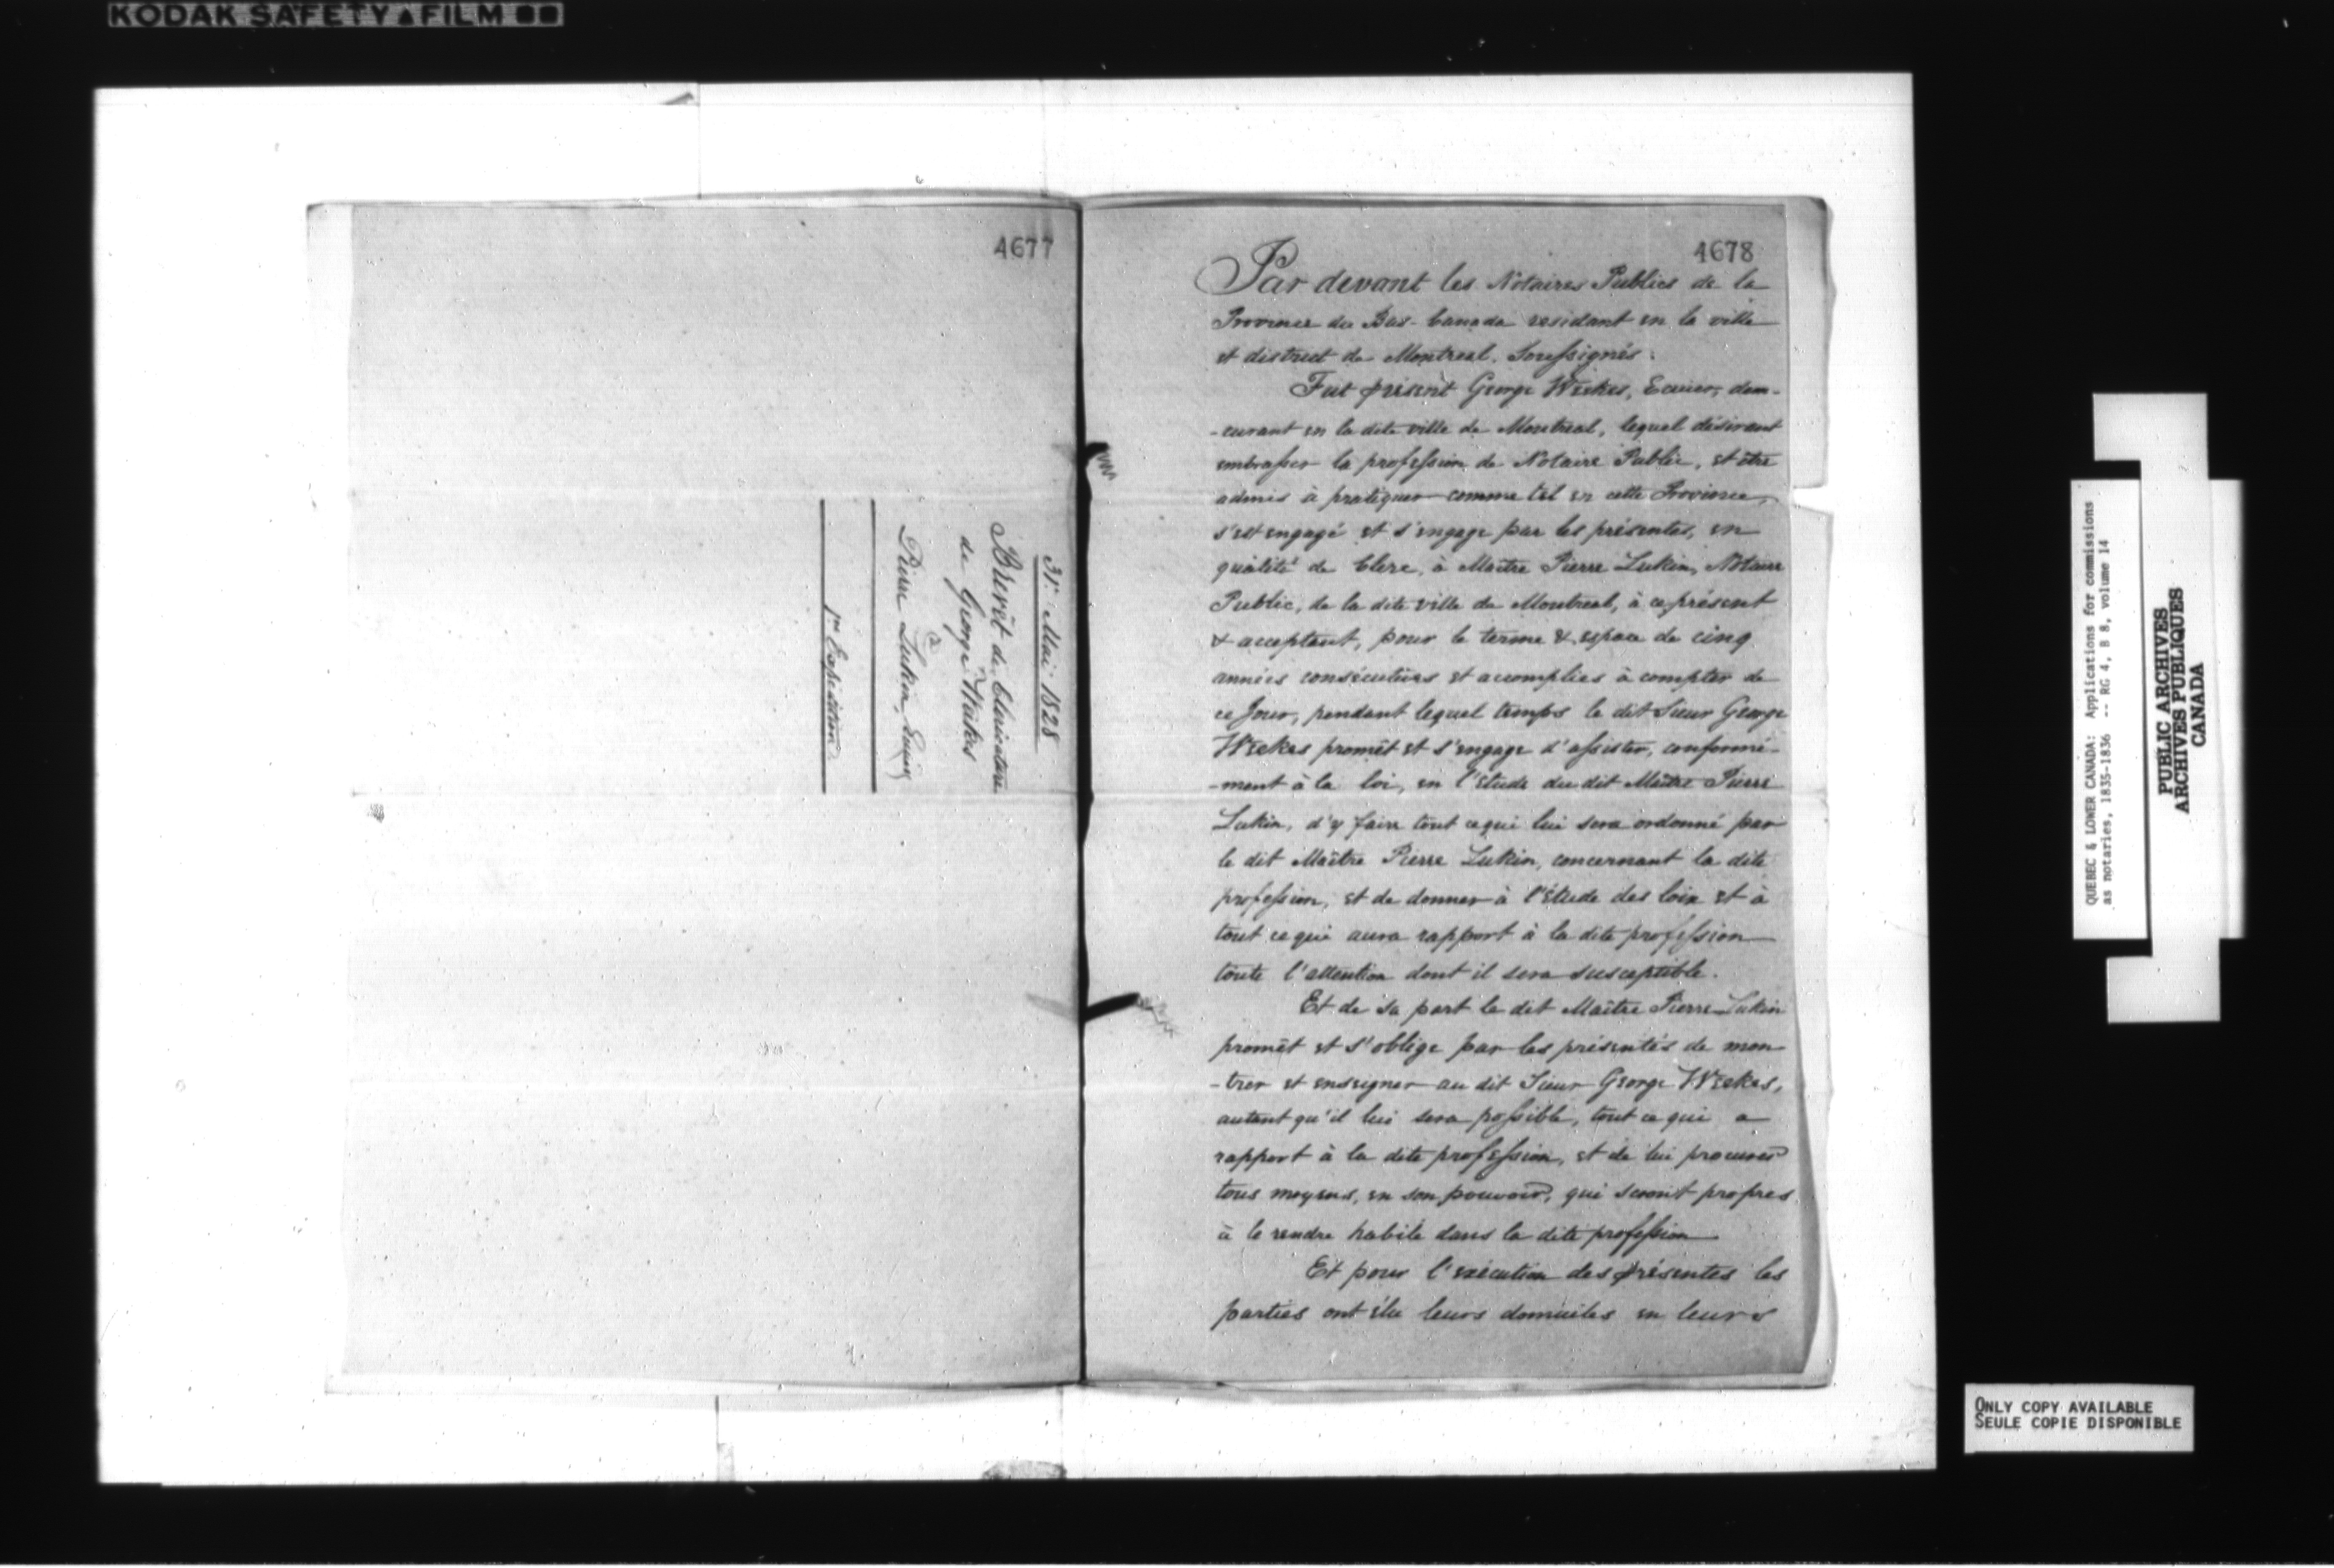 KODAK SAFETY FILM
4677
31 Mai 1828
Brevêt de Cléricature
de George Weekes
à
Pierre Lukin, Ecuier
1re Expédition
4678
Par devant les Notaires Publics de la
Province du Bas-Canada residant en la ville
et district de Montreal. Soussignés:
Fut présent George Weekes, Ecuier, dem-
-eurant en la dite ville de Montreal, lequel désirant
embrasser la profession de Notaire Public, et être
admis à pratiquer comme tel en cette Province,
s'est engagé et s'engage par les présentes, en
qualité de Clerc, à Maître Pierre Lukin, Notaire
Public, de la dite ville de Montreal, à ce présent
& acceptant, pour le terme & espace de cinq
années consécutives et accomplies à compter de
ce Jour, pendant lequel temps le dit Sieur George
Weekes promêt et s'engage d'assister, conformé-
-ment à la loi, en l'étude du dit Maître Pierre
Lukin, d'y faire tout ce qui lui sera ordonné par
le dit Maître Pierre Lukin, concernant la dite
profession, et de donner à l'étude des loix et à
tout ce qui aura rapport à la dite profession
toute l'attention dont il sera susceptible.
Et de sa part le dit Maître Pierre Lukin
promêt et s'oblige par les présentés de mon
-trer et enseigner au dit Sieur George Weekes,
autant qu'il lui sera possible, tout ce qui a
rapport à la dite profession, et de lui procurer
tous moyens, en son pouvoir, qui seront propres
à le rendre habile dans la dite profession
Et pour l'exécution des présentes les
parties ont élu leurs domiciles en leurs
QUEBEC & LOWER CANADA: Applications for commissions
as notaries, 1835-1836 -- RG 4, B 8, volume 14
PUBLIC ARCHIVES
ARCHIVES PUBLIQUES
CANADA
ONLY COPY AVAILABLE
SEULE COPIE DISPONIBLE